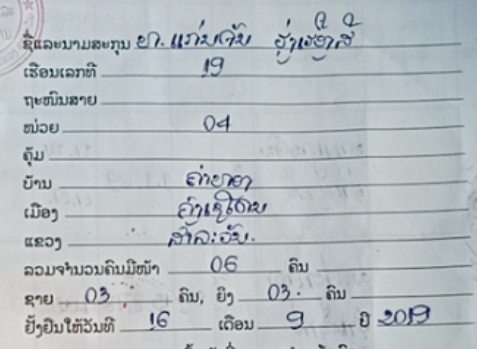 ຊື່ແລະນາມສະກຸນ ທ. ແກ່ນຈັນ
ເຮືອນເລກທີ 19
ຖະໜົນສາຍ
ໜ່ວຍ 04
ຄຸ້ມ
ບ້ານ
ເມືອງ
ແຂວງ ສາລະວັນ.
ລວມຈຳນວນຄົນມີໜ້າ 06 ຄົນ
ຊາຍ 03. ຄົນ, ຍິງ 03. ຄົນ
ຢັ້ງຢືນໃຫ້ວັນທີ 16 ເດືອນ 9 ປີ 2019